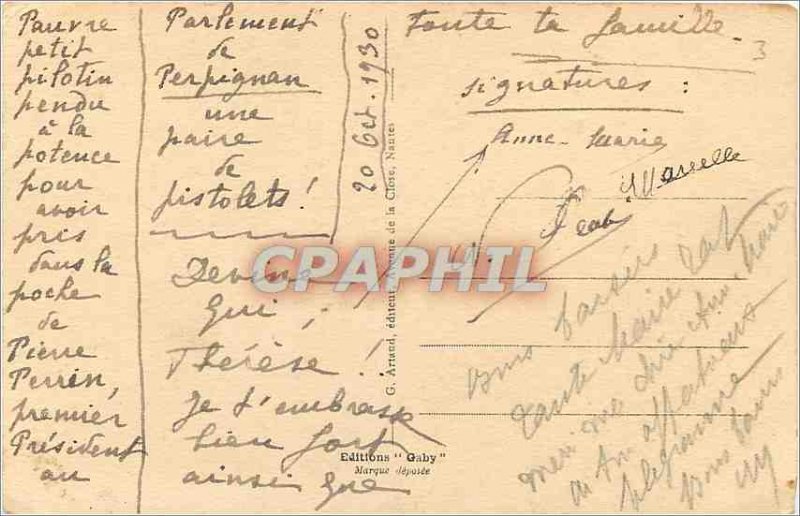 Pauvre
petit
pilotin
pendu
à la
potence
pour
avoir
pris
dans la
poche
de
Pierre
Perrin,
premier
Président
au
Parlement
de
Perpignan
une
paire
de
pistolets!
Devine
qui,
Thérèse!
Je t'embrasse
bien fort
ainsi que
20 Oct. 1930
toute ta famille.
3
signatures:
Anne-Marie
Marcelle
G. Artaud, éditeur, Avenue de la Close, Nantes
Editions "Gaby"
Marque déposée
bons baisers
tante Marie
ma chère
affectueux
bons
CPAPHIL